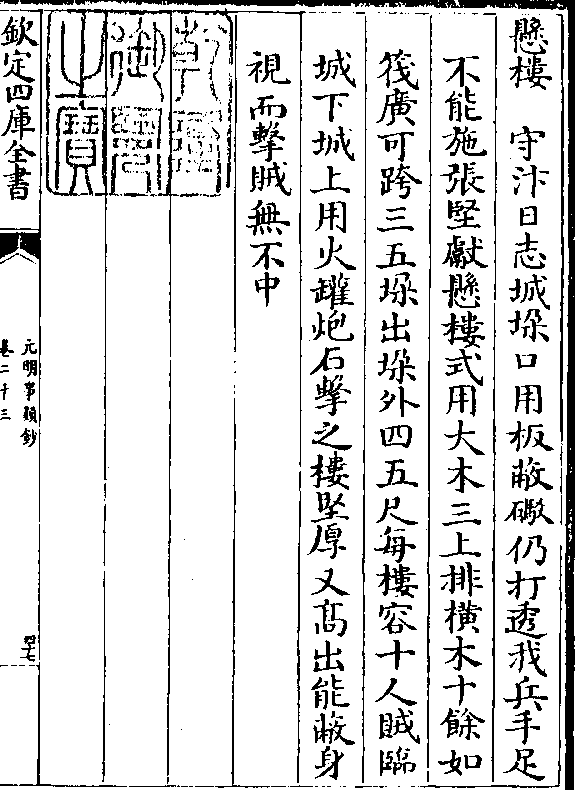 懸樓　守汴日志城垛口用板蔽礮仍打透我兵手足
不能施張堅獻懸樓式用大木三上排橫木十餘如
筏廣可跨三五垛出垛外四五尺每樓容十人賊臨
城下城上用火罐炮石擊之樓堅厚又髙出能蔽身
視而擊賊無不中
乾隆
御覽
之寶
欽定四庫全書
元明事類鈔
卷二十三
四七